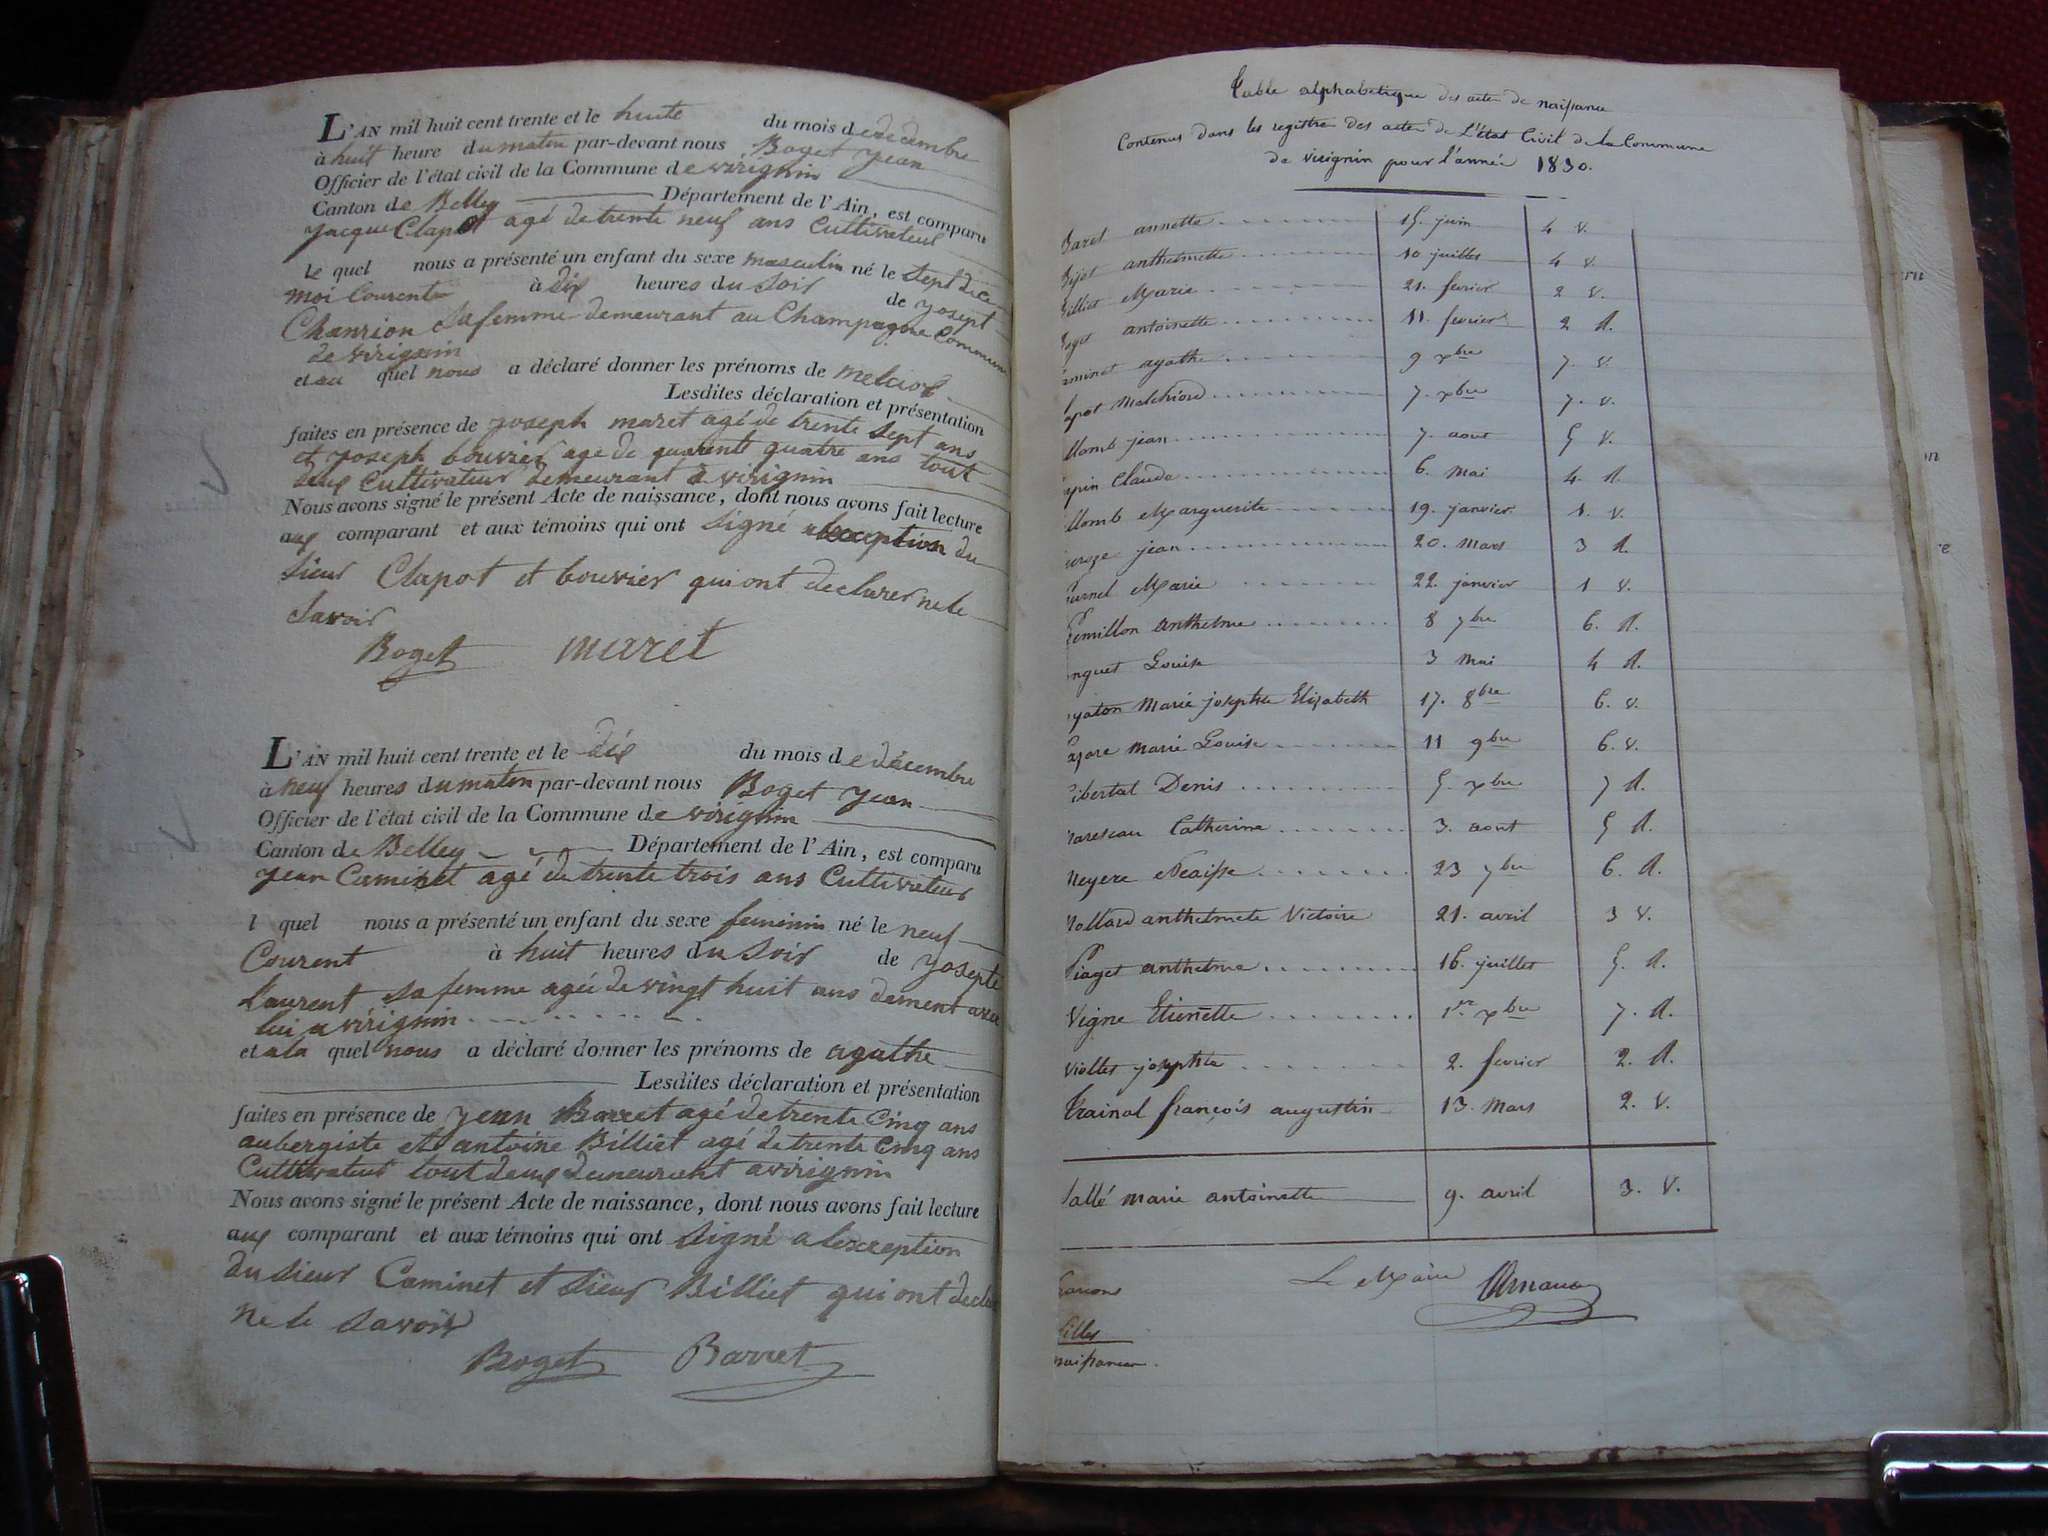 L'AN mil huit cent trente et le huite du mois de décembre
à huit heure du matin par-devant nous Boget yean
Officier de l'état civil de la Commune de virignin
Canton de Belley Département de l'Ain, est comparu
yacque Clapot agé de trente neuf ans Cultivateur
le quel nous a présenté un enfant du sexe masculin né le sept du
moi Courent à dix heures du soir de yosept
Chanrion sa femme demeurant au Champagne Commune
de virignin
et au quel nous a déclaré donner les prénoms de melcior
Lesdites déclaration et présentation
faites en présence de yoseph maret agé de trente sept ans
et yoseph bouvier age de quarente quatre ans tout
deux Cultivateur demeurant a virignin
Nous avons signé le présent Acte de naissance, dont nous avons fait lecture
aux comparant et aux témoins qui ont signé a lexception du
sieur Clapot et bouvier qui ont declarer ne le
savoir
Boget maret
L'AN mil huit cent trente et le dix du mois de décembre
à neuf heures du matin par-devant nous Boget yean
Officier de l'état civil de la Commune de virignin
Canton de Belley Département de l'Ain, est comparu
yean Caminet agé de trente trois ans Cultivateur
l quel nous a présenté un enfant du sexe feminin né le neuf
Courent à huit heures du soir de yosepte
Laurent sa femme agée de vingt huit ans dement avec
lui a virignin
et a la quel nous a déclaré donner les prénoms de agathe
Lesdites déclaration et présentation
faites en présence de yean Barret agé de trente Cinq ans
aubergiste et antoine Billiet agé de trente Cinq ans
Cultivateur tout deux demeurant a virignin
Nous avons signé le présent Acte de naissance, dont nous avons fait lecture
aux comparant et aux témoins qui ont signé a lexception
du sieur Caminet et sieur Billiet qui ont decla
ne le savoir
Boget Barret
Table alphabetique des actes de naissance
Contenus dans les registre des actes de L'état Civil de la Commune
de virignin pour l'année 1830.
Baret annette 15. juin 4 v.
Bijot anthelmette 10 juillet 4 v.
Billiet Marie 21. fevrier 2 v.
Boget antoinette 11. fevrier 2 r.
Caminet agathe 9 xbre 7. v.
Clapot Melchiord 7. xbre 7. v.
llomb jean 7. aout 5 v.
pin Claude 6. Mai 4. r.
llomb Marguerite 19. janvier 1. v.
jean 20. Mars 3 r.
urnel Marie 22. janvier 1 v.
emillon anthelme 8 7bre 6. r.
nguet Louise 3 Mai 4 r.
yaton Marie josephte Elizabeth 17. 8bre 6. v.
Marie Louise 11 9bre 6. v.
ibertal Denis 5. xbre 7 r.
areseau Catherine 3. aout 5 r.
Meyere Neaisse 23 7bre 6. r.
Mollard anthelmete Victoire 21. avril 3 v.
Piaget anthelme 16. juillet 5. r.
Vigne Etienette 1er xbre 7. r.
Viollet josephte 2. fevrier 2. r.
Trainal françois augustin 13. Mars 2. v.
Sallé marie antoinette 9. avril 3. v.
Garcons Le Maire Arnaud
filles
naissances